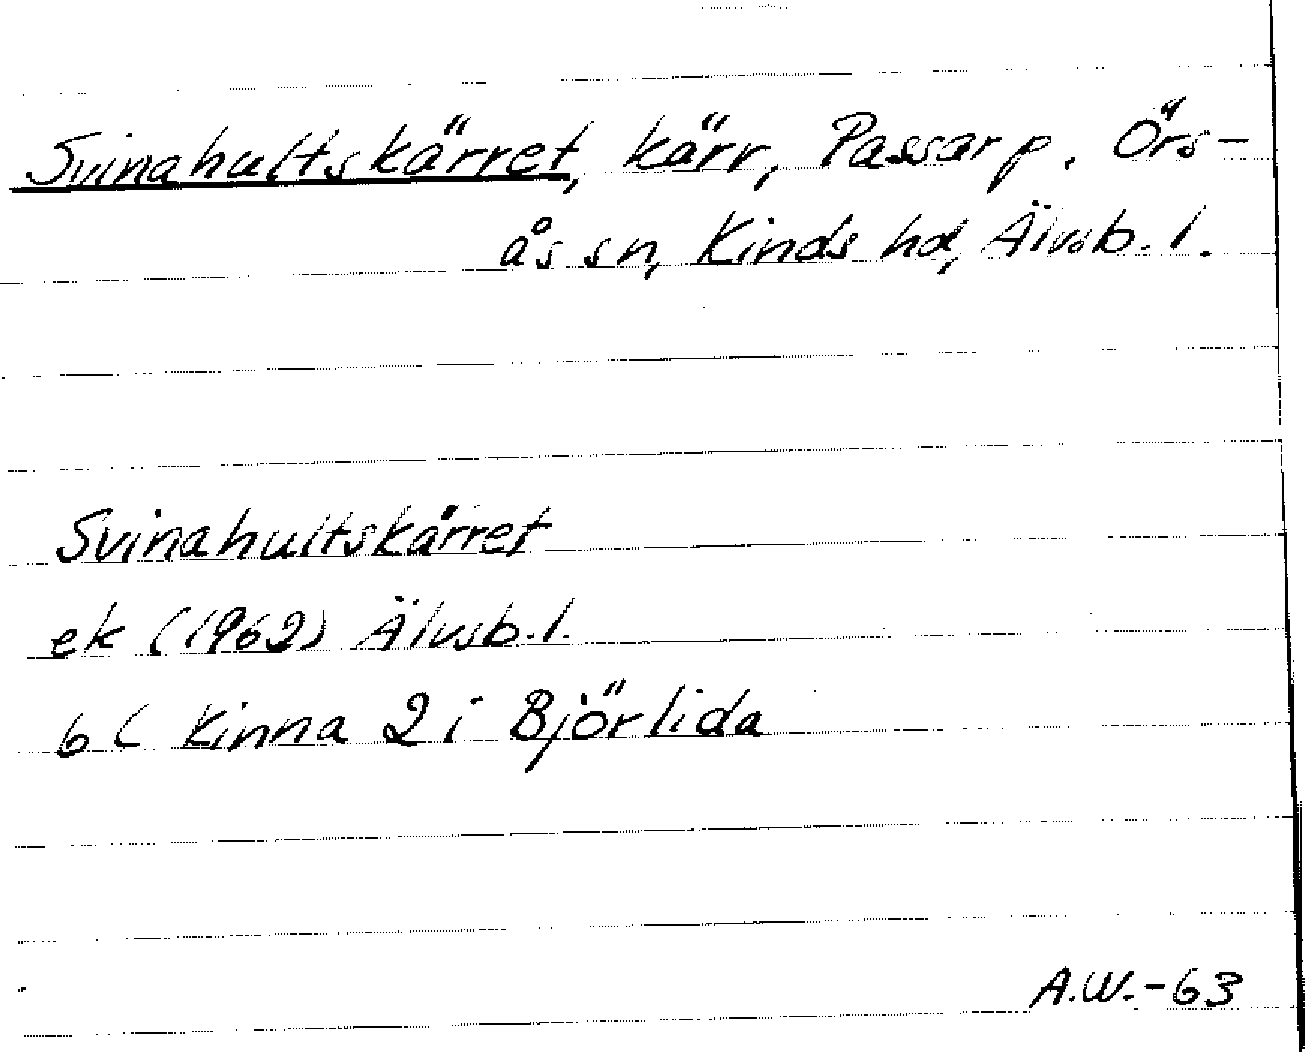 Svinahultskärret, kärr, Passarp. Örs-
ås sn, Kinds hd, Älvsb. l.
Svinahultskärret
ek (1962) Älvsb. l.
6C Kinna 2 i Björlida
A.W.-63